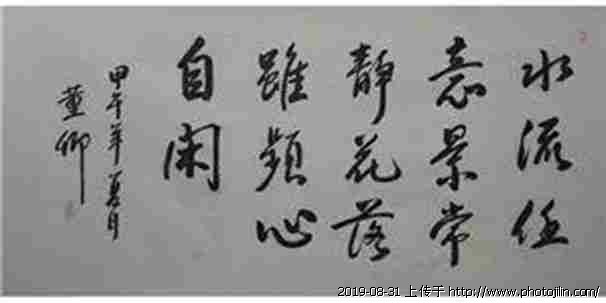 水流任
意景常
静花落
雖頻心
自闲
甲午年夏月
董
2019-08-31 上传于 http://www.photojilin.com/